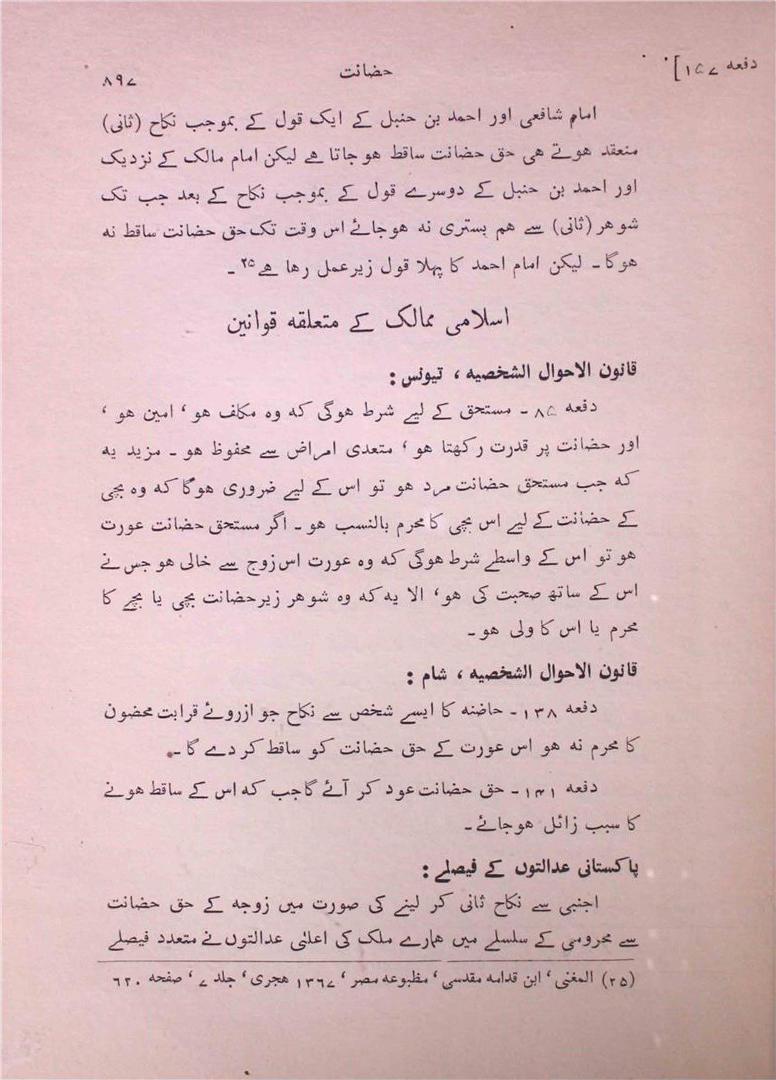 دفعہ ۱۵۷]
حضانت
۸۹۷
امام شافعی اور احمد بن حنبل کے ایک قول کے بموجب نکاح (ثانی)
منعقد ہوتے ہی حق حضانت ساقط ہو جاتا ہے لیکن امام مالک کے نزدیک
اور احمد بن حنبل کے دوسرے قول کے بموجب نکاح کے بعد جب تک
شوہر (ثانی) سے ہم بستری نہ ہوجائے اس وقت تک حق حضانت ساقط نہ
ہوگا ۔ لیکن امام احمد کا پہلا قول زیرعمل رہا ہے۲۵ ۔
اسلامی ممالک کے متعلقہ قوانین
قانون الاحوال الشخصیہ ، تیونس :
دفعہ ۸۵ ۔ مستحق کے لیے شرط ہوگی کہ وہ مکلف ہو ، امین ہو ،
اور حضانت پر قدرت رکھتا ہو ، متعدی امراض سے محفوظ ہو ۔ مزید یہ
کہ جب مستحق حضانت مرد ہو تو اس کے لیے ضروری ہوگا کہ وہ بچی
کے حضانت کے لیے اس بچی کا محرم بالنسب ہو ۔ اگر مستحق حضانت عورت
ہو تو اس کے واسطے شرط ہوگی کہ وہ عورت اس زوج سے خالی ہو جس نے
اس کے ساتھ صحبت کی ہو ، الا یہ کہ وہ شوہر زیرحضانت بچی یا بچے کا
محرم یا اس کا ولی ہو ۔
قانون الاحوال الشخصیہ ، شام :
دفعہ ۱۳۸ ۔ حاضنہ کا ایسے شخص سے نکاح جو ازروئے قرابت محضون
کا محرم نہ ہو اس عورت کے حق حضانت کو ساقط کر دے گا ۔
دفعہ ۱۴۱ ۔ حق حضانت عود کر آئے گا جب کہ اس کے ساقط ہونے
کا سبب زائل ہوجائے ۔
پاکستانی عدالتوں کے فیصلے :
اجنبی سے نکاح ثانی کر لینے کی صورت میں زوجہ کے حق حضانت
سے محرومی کے سلسلے میں ہمارے ملک کی اعلیٰ عدالتوں نے متعدد فیصلے
(۲۵) المغنی ، ابن قدامہ مقدسی ، مطبوعہ مصر ، ۱۳۶۷ ہجری ، جلد ۷ ، صفحہ ۶۲۰